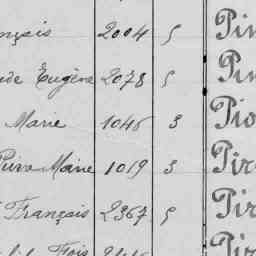 nçois 2004 5 Pin
de Eugène 2078 5 Pin
Marie 1046 3 Pio
Marie 1019 3 Pir
François 2367 5 Pir
Fois Pir